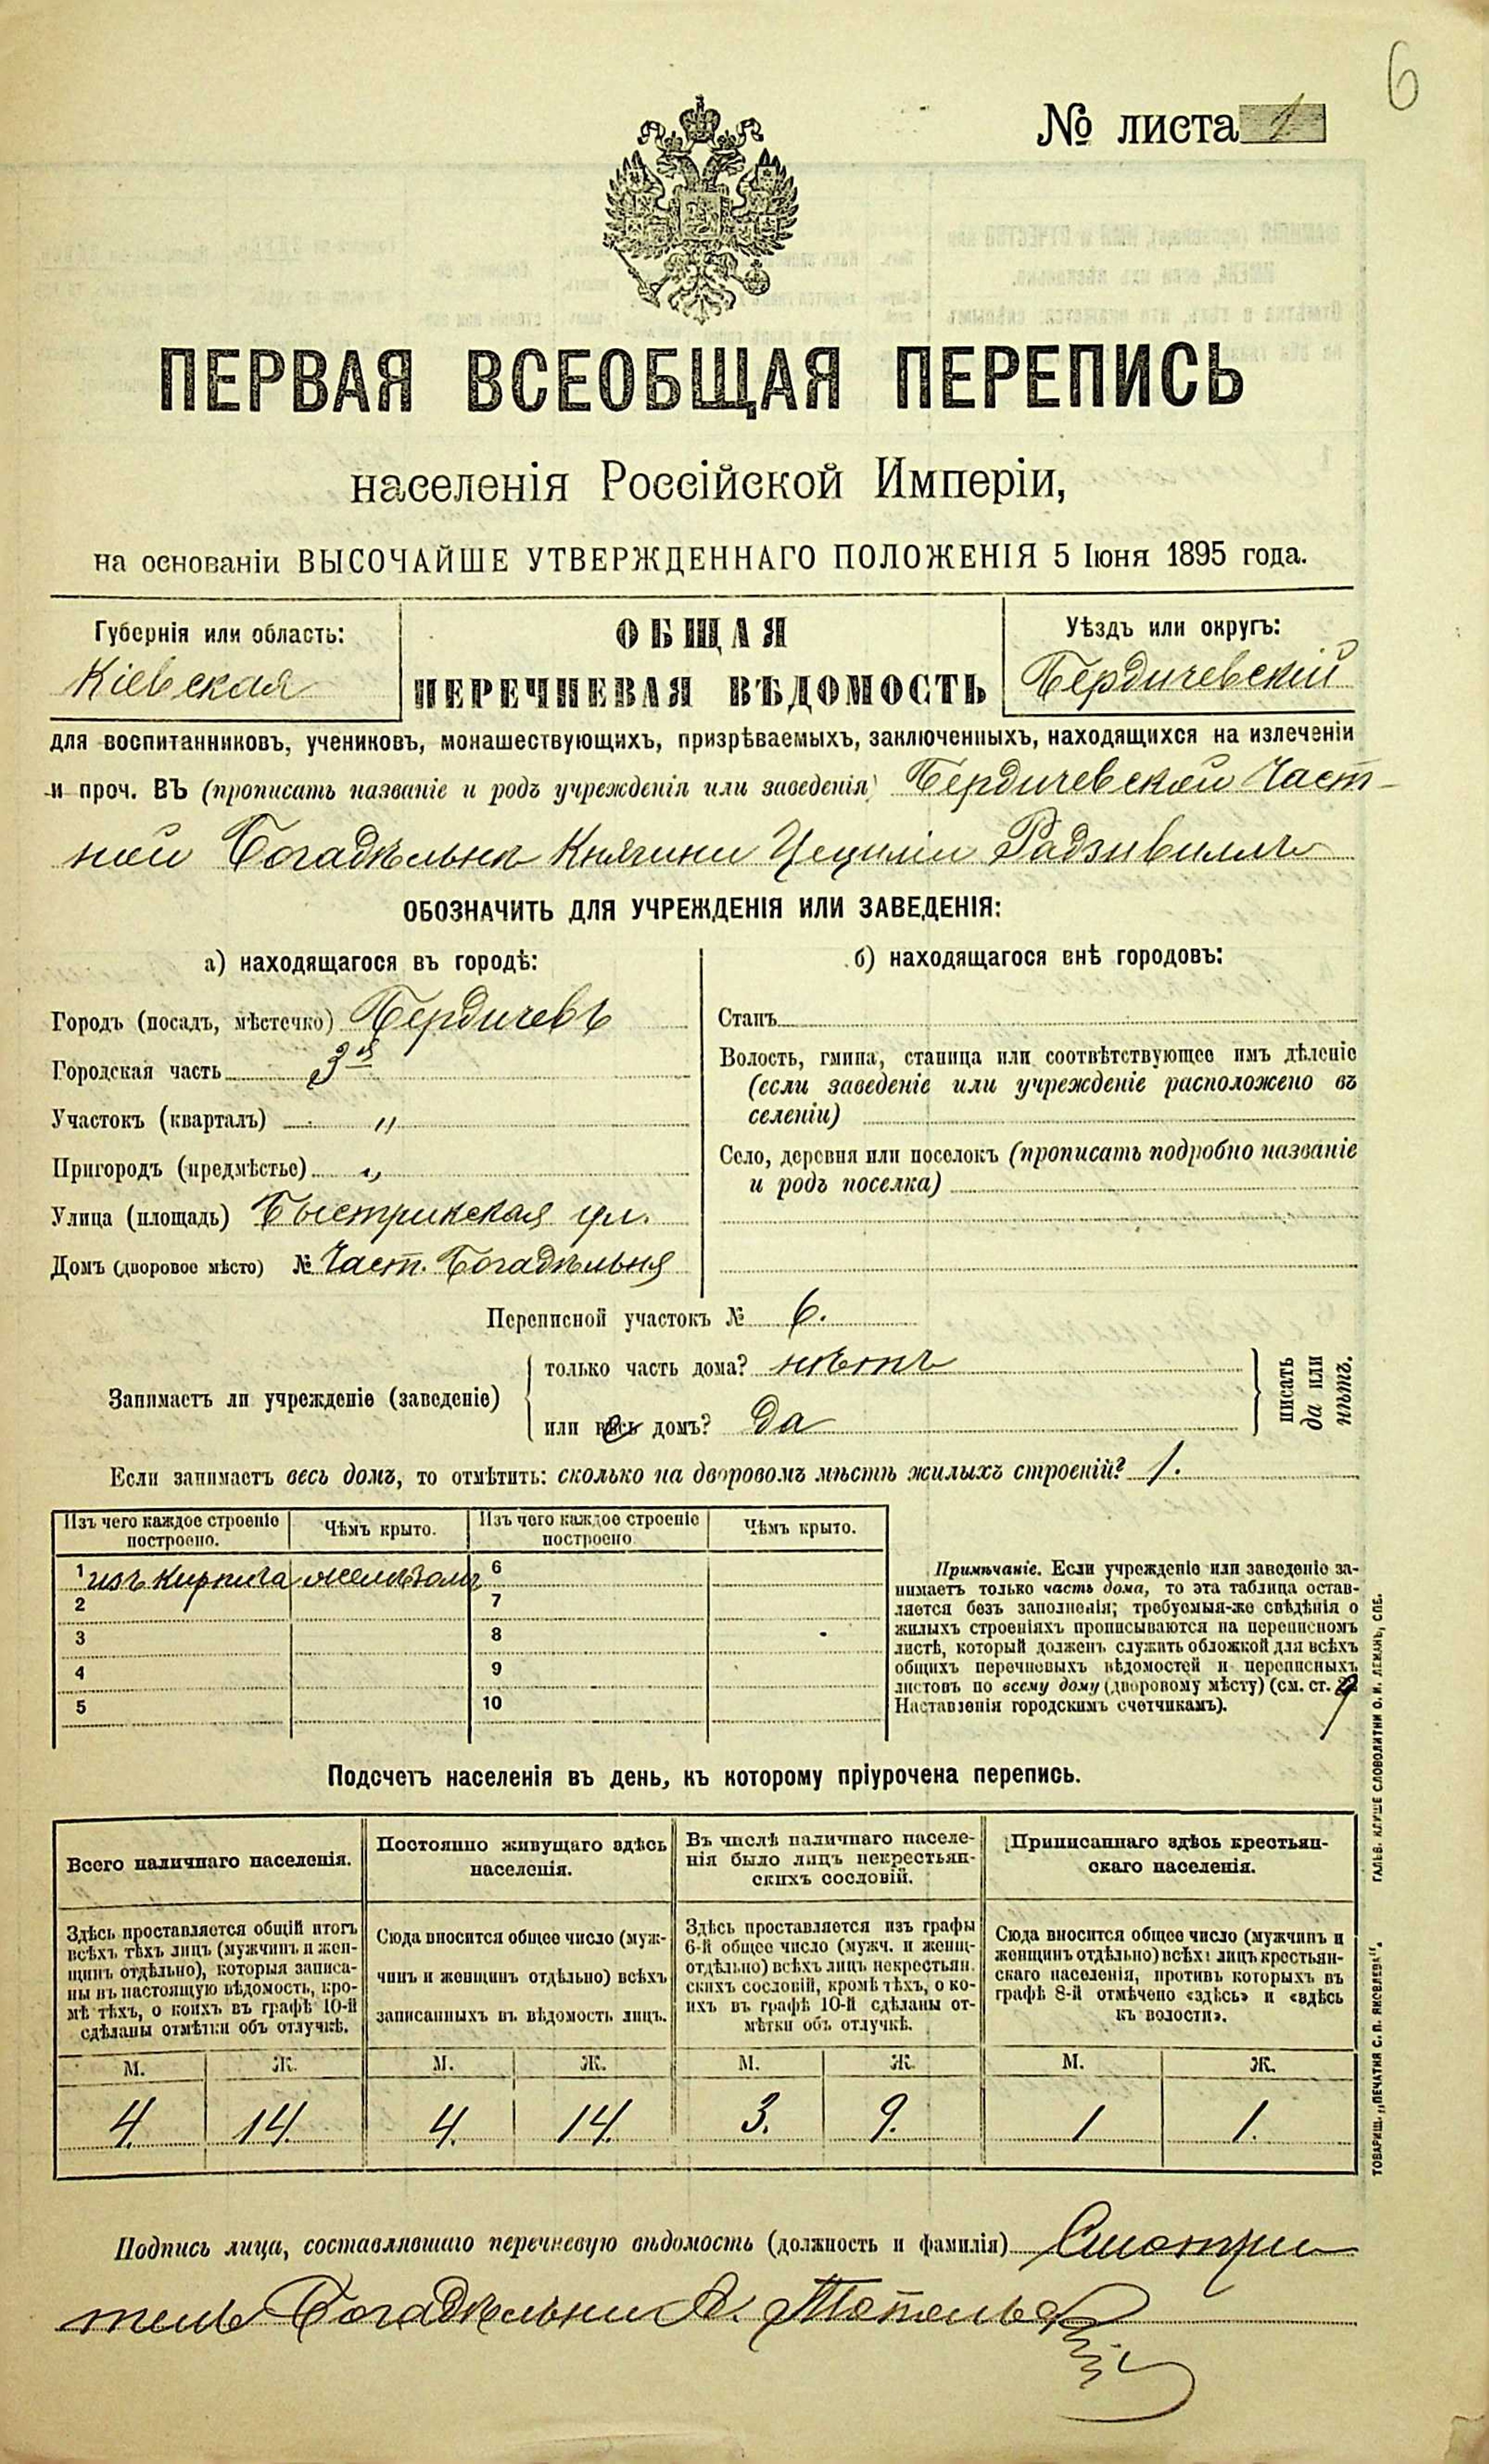 6
№ листа 1
ПЕРВАЯ ВСЕОБЩАЯ ПЕРЕПИСЬ
населенія Россійской Имперіи,
на основаніи ВЫСОЧАЙШЕ УТВЕРЖДЕННАГО ПОЛОЖЕНІЯ 5 Іюня 1895 года.
Губернія или область:
Кіевская
ОБЩАЯ
ПЕРЕЧНЕВАЯ ВѢДОМОСТЬ
Уѣздъ или округъ:
Бердичевскій
для воспитанниковъ, учениковъ, монашествующихъ, призрѣваемыхъ, заключенныхъ, находящихся на излеченіи
и проч. ВЪ (прописать названіе и родъ учрежденія или заведенія) Бердичевской Част-
ной Богадѣльнѣ Княгини Цециліи Радзивиллъ
ОБОЗНАЧИТЬ ДЛЯ УЧРЕЖДЕНІЯ ИЛИ ЗАВЕДЕНІЯ:
а) находящагося въ городѣ:
Городъ (посадъ, мѣстечко) Бердичевъ
Городская часть 3я
Участокъ (кварталъ) "
Пригородъ (предмѣстье) "
Улица (площадь) Быстрикская ул.
Домъ (дворовое мѣсто) № Част. Богадѣльня
б) находящагося внѣ городовъ:
Станъ
Волость, гмина, станица или соотвѣтствующее имъ дѣленіе
(если заведеніе или учрежденіе расположено въ
селеніи)
Село, деревня или поселокъ (прописать подробно названіе
и родъ поселка)
Переписной участокъ № 6.
Занимаетъ ли учрежденіе (заведеніе)
только часть дома? нѣтъ
или весь домъ? Да
писать
да или
нѣтъ.
Если занимаетъ весь домъ, то отмѣтить: сколько на дворовомъ мѣстѣ жилыхъ строеній? 1.
Изъ чего каждое строеніе
построено.
Чѣмъ крыто.
Изъ чего каждое строеніе
построено
Чѣмъ крыто.
1 изъ кирпича желѣзомъ 6
2 7
3 8
4 9
5 10
Примѣчаніе. Если учрежденіе или заведеніе за-
нимаетъ только часть дома, то эта таблица остав-
ляется безъ заполненія; требуемыя-же свѣдѣнія о
жилыхъ строеніяхъ прописываются на переписномъ
листѣ, который долженъ служить обложкой для всѣхъ
общихъ перечневыхъ вѣдомостей и переписныхъ
листовъ по всему дому (дворовому мѣсту) (см. ст.
Наставленія городскимъ счетчикамъ).
Подсчетъ населенія въ день, къ которому пріурочена перепись.
Всего наличнаго населенія.
Здѣсь проставляется общій итогъ
всѣхъ тѣхъ лицъ (мужчинъ и жен-
щинъ отдѣльно), которыя записа-
ны въ настоящую вѣдомость, кро-
мѣ тѣхъ, о коихъ въ графѣ 10-й
сдѣланы отмѣтки объ отлучкѣ.
М. Ж.
4. 14.
Постоянно живущаго здѣсь
населенія.
Сюда вносится общее число (муж-
чинъ и женщинъ отдѣльно) всѣхъ
записанныхъ въ вѣдомость лицъ.
М. Ж.
4. 14.
Въ числѣ наличнаго населе-
нія было лицъ некрестьян-
скихъ сословій.
Здѣсь проставляется изъ графы
6-й общее число (мужч. и женщ.
отдѣльно) всѣхъ лицъ некрестьян.
скихъ сословій, кромѣ тѣхъ, о ко-
ихъ въ графѣ 10-й сдѣланы от-
мѣтки объ отлучкѣ.
М. Ж.
3. 9.
Приписаннаго здѣсь крестьян-
скаго населенія.
Сюда вносится общее число (мужчинъ и
женщинъ отдѣльно) всѣхъ лицъ крестьян-
скаго населенія, противъ которыхъ въ
графѣ 8-й отмѣчено «здѣсь» и «здѣсь
къ волости».
М. Ж.
1 1.
Подпись лица, составлявшаго перечневую вѣдомость (должность и фамилія) Смотри
тель Богадѣльни А.
ТОВАРИЩ. „ПЕЧАТНЯ С. П. ЯКОВЛЕВА“. ГАЛЬВ. КЛИШЕ СЛОВОЛИТНИ О. И. ЛЕМАНЪ, СПБ.